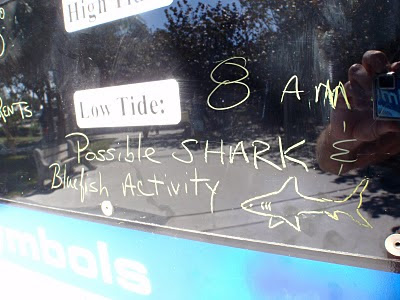 High Tide:
Low Tide: 8 A.m
Possible SHARK &
Bluefish Activity
mbols